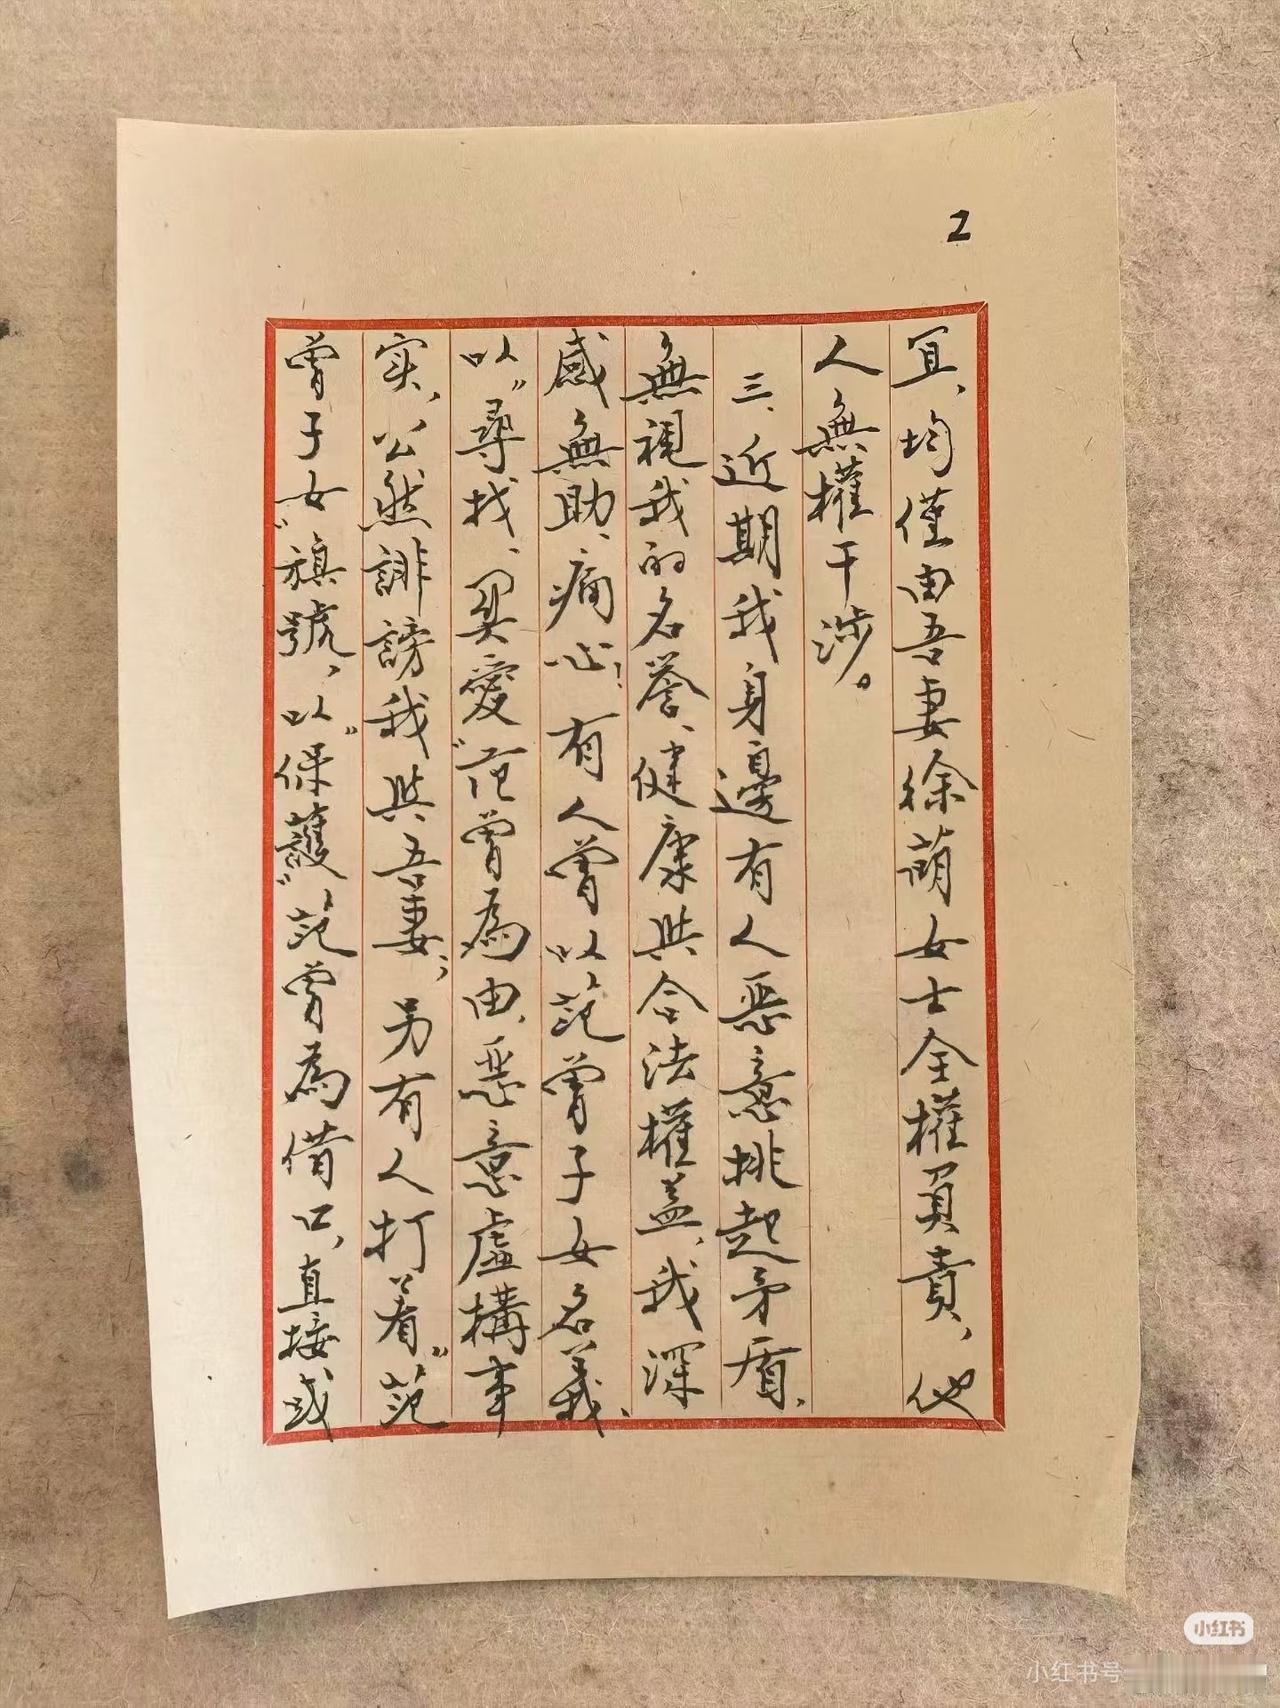 2
宜，均僅由吾妻徐萌女士全權負責，他
人無權干涉。
三、近期我身邊有人惡意挑起矛盾，
無視我的名譽、健康與合法權益，我深
感無助、痛心！有人曾以范曾子女名義，
以“尋找、関愛”范曾為由，惡意虛構事
实，公然誹謗我與吾妻；另有人打着“范
曾子女”旗號，以“保護”范曾為借口，直接或
小红书
小红书号